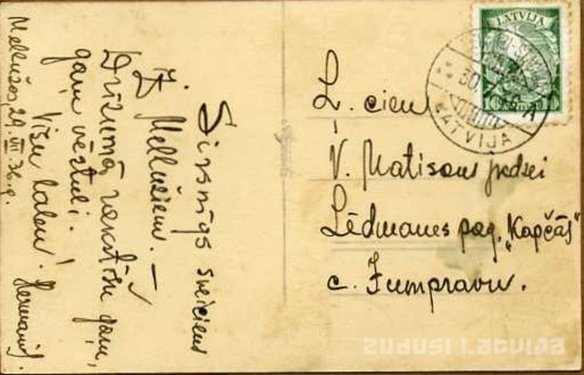 Sirsnīgs sveiciens
Ž Mellužiem. —
Drīzumā rakstīšu gaŗ,
gaŗ vēstuli.
Visu labu! Hermanis.
Mellužos, 29. VII 36. g.
LATVIJA
10
LATVIJA
30
A
L. cien
V. Matisons jkdzei
Lēdmanes pag. „Kapčās"
c. Jumpravu.
ZUDUSĪ LATVIJA